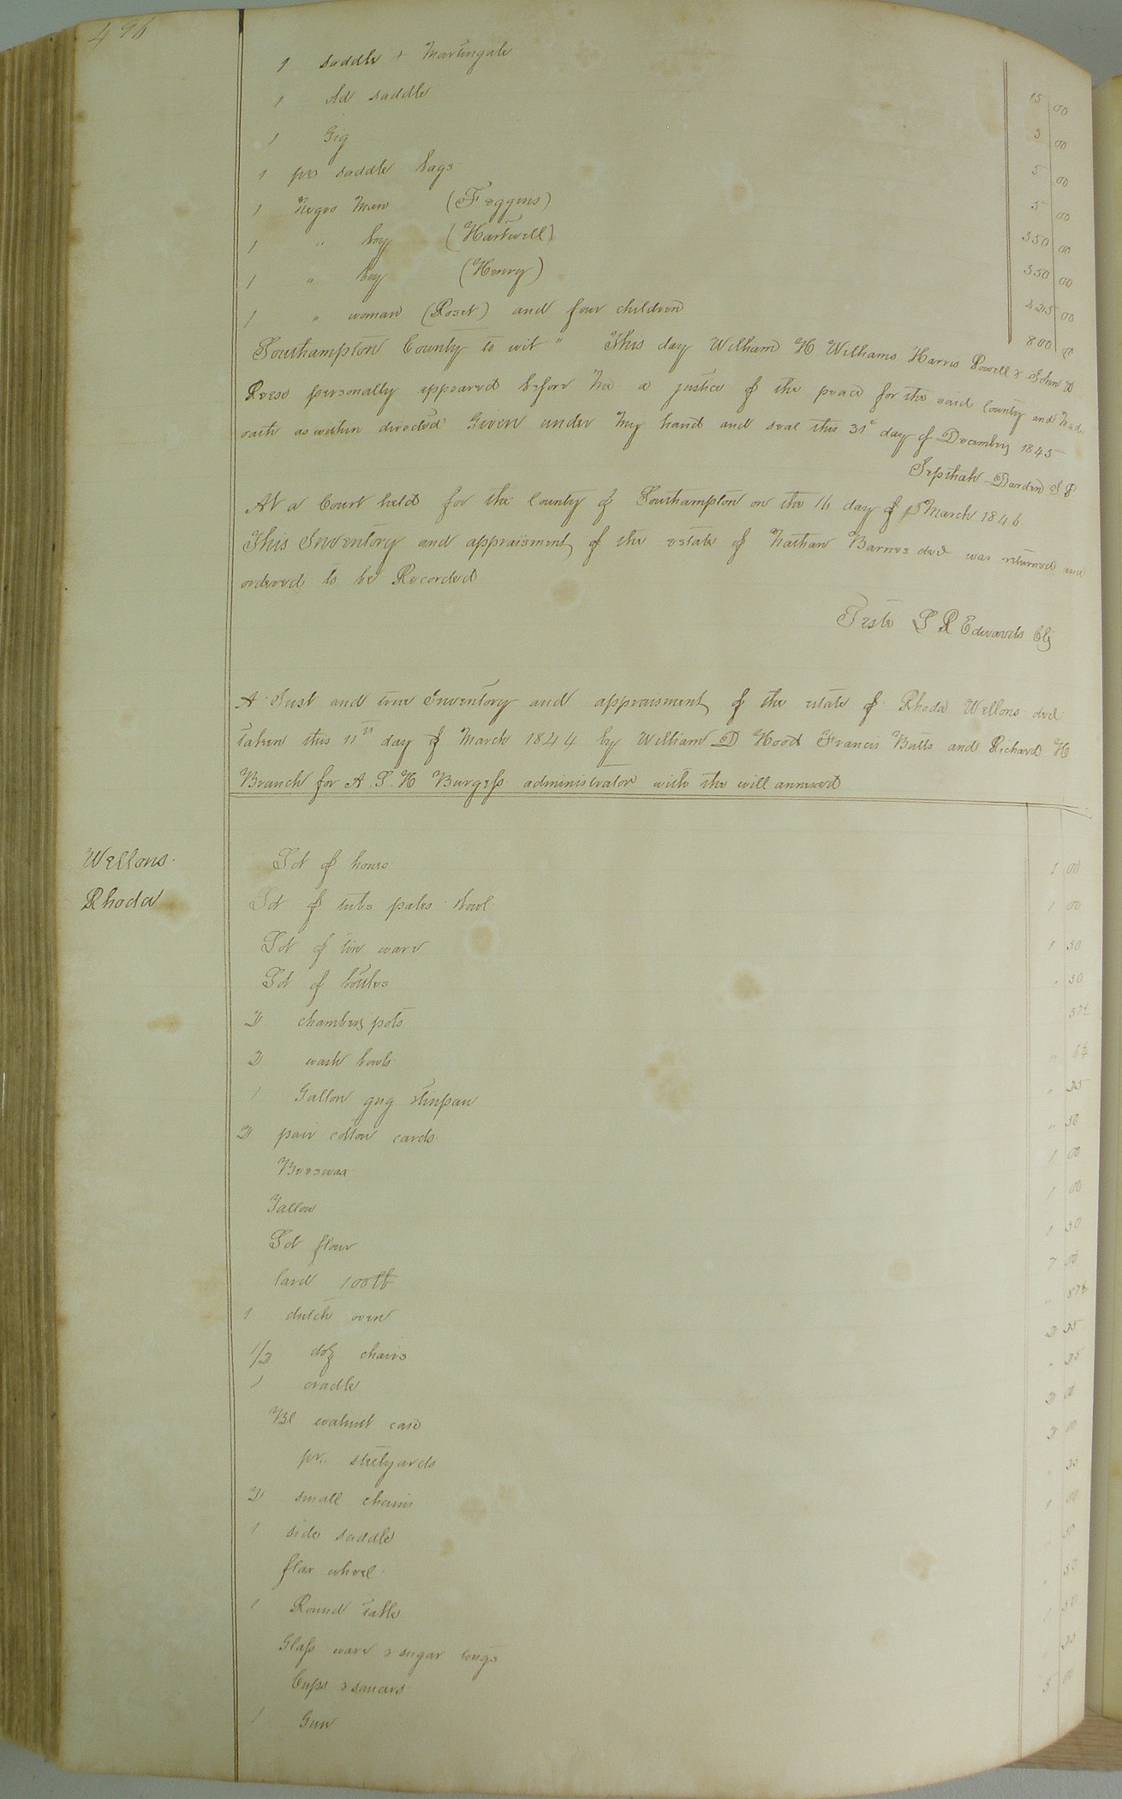 496
1 saddle + Martingale 15 00
1 old saddle 3 00
1 Gig 5 00
1 pr saddle bags 5 00
1 Negro Man 350 00
1 " boy (Hartwell) 350 00
1 " boy (Henry) 425 00
1 " woman (Roset) and four children 800 0
Southampton County to wit " This day William H Williams Harris Powell & John D
Reese personally appeared before me a justice of the peace for the said County and made
oath as within directed Given under my hand and seal this 31st day of December 1845
Jepthah Darden J P
At a Court held for the County of Southampton on the 16 day of March 1846
This Inventory and appraisment of the estate of Nathan Barnes decd was returned and
ordered to be Recorded
Teste L R Edwards Clk
A Just and true Inventory and appraisment of the estate of Rhoda Wellons decd
taken this 11th day of March 1844 by William D Hood Francis Batts and Richard H
Branch for A. S. H Burgess administrator with the will annexed
Wellons
Rhoda
Lot of 1 00
Lot of tubs pales bowl 1 00
Lot of tin ware 1 50
Lot of bottles " 50
2 chamber pots 37½
2 wash bowls " 6¼
1 Gallon gug stinpan " 25
2 pair cotton cards " 50
Beeswax 1 00
Tallow 1 00
Lot flour 1 50
lard 100 lb 7 00
1 dutch oven " 87½
1/2 doz chairs 2 25
1 cradle " 25
Bl walnut case 2 00
pr. stilyards 2 00
2 small chains
1 side saddle 1 00
flax wheel 50
1 Round table 50
Glass ware & sugar tongs 50
Cups & saucers
1 Gun 5 00